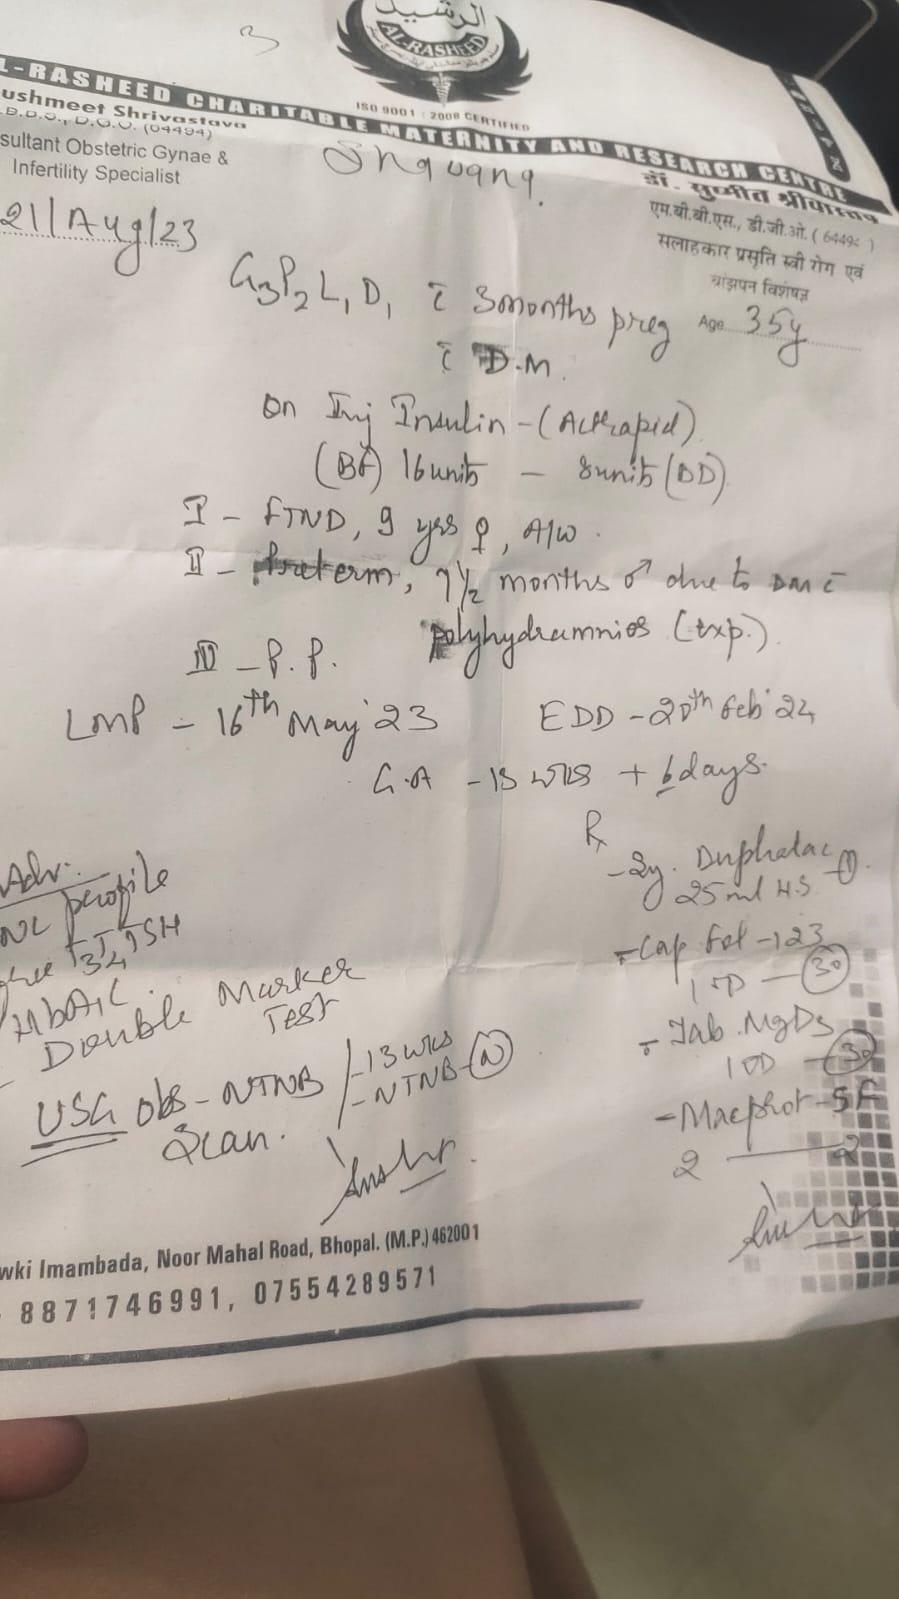 3
الرشيد
AL-RASHEED
ISO 9001 : 2008 CERTIFIED
L-RASHEED CHARITABLE MATERNITY AND RESEARCH CENTRE
ushmeet Shrivastava
.B.B.S., D.G.O. (04494)
sultant Obstetric Gynae &
Infertility Specialist
डॉ. सुष्मीत श्रीवास्तव
एम.बी.बी.एस., डी.जी.ओ.
सलाहकार प्रसूति स्त्री रोग एवं
बांझपन विशेषज्ञ
21/Aug/23
Age 35y
G3P2L1D1 c̄ 3months preg
c̄ D.M.
on Inj Insulin - (Actrapid)
(BF) 16 units - 8units (BD)
I - FTND, 9 yrs ♀, A/W.
II - Preterm, 7½ months ♂ due to DM c̄
polyhydramnios (exp.)
III - P.P.
LMP - 16th May'23 EDD - 20th Feb'24
G.A - 13 wks + 6days.
Rx
- Sy. Duphalac - (1).
25ml H.S
- Cap Fol-123
1 OD - (30)
- Tab. MgD3
1 OD - (30)
- Macprot-SF
2 - 2
Adv.
ANC profile
Free T3 T4 TSH
HbA1C.
- Double Marker
Test
USG Obs - NTNB / - 13 wks
Scan. / - NTNB - (N)
wki Imambada, Noor Mahal Road, Bhopal. (M.P.) 462001
8871746991, 07554289571